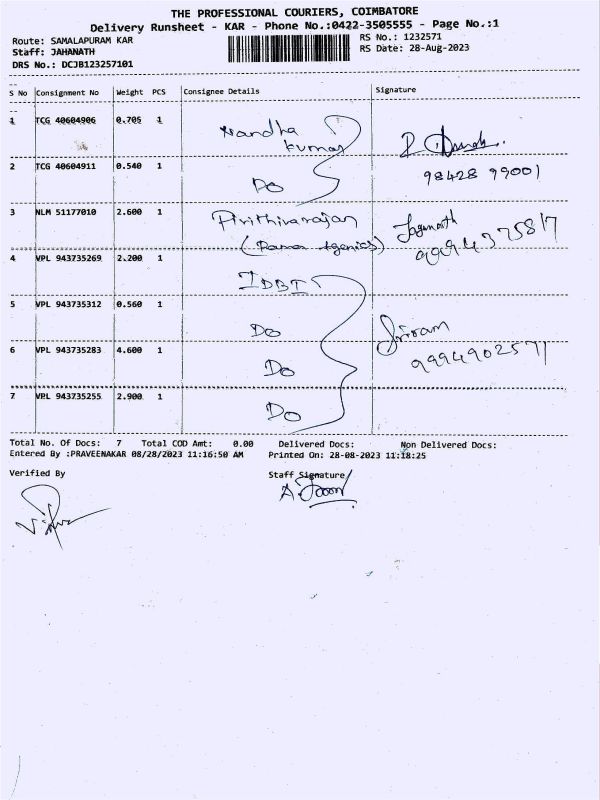 THE PROFESSIONAL COURIERS, COIMBATORE
Delivery Runsheet - KAR - Phone No.:0422-3505555 - Page No.:1
Route: SAMALAPURAM KAR
RS No.: 1232571
Staff: JAHANATH
RS Date: 28-Aug-2023
DRS No.: DCJB123257101
S No Consignment No Weight PCS Consignee Details Signature
1 TCG 40604906 0.705 1 Nandha kumar
2 TCG 40604911 0.540 1 Do 98428 99001
3 NLM 51177010 2.600 1 Prithivarajan Jaganath
(Parma Agenics) 9994375817
4 VPL 943735269 2.200 1 IDBI
5 VPL 943735312 0.560 1 Do Sriram
6 VPL 943735283 4.600 1 Do 9994902571
7 VPL 943735255 2.900 1 Do
Total No. Of Docs: 7 Total COD Amt: 0.00 Delivered Docs: Non Delivered Docs:
Entered By :PRAVEENAKAR 08/28/2023 11:16:50 AM Printed On: 28-08-2023 11:18:25
Verified By Staff Signature